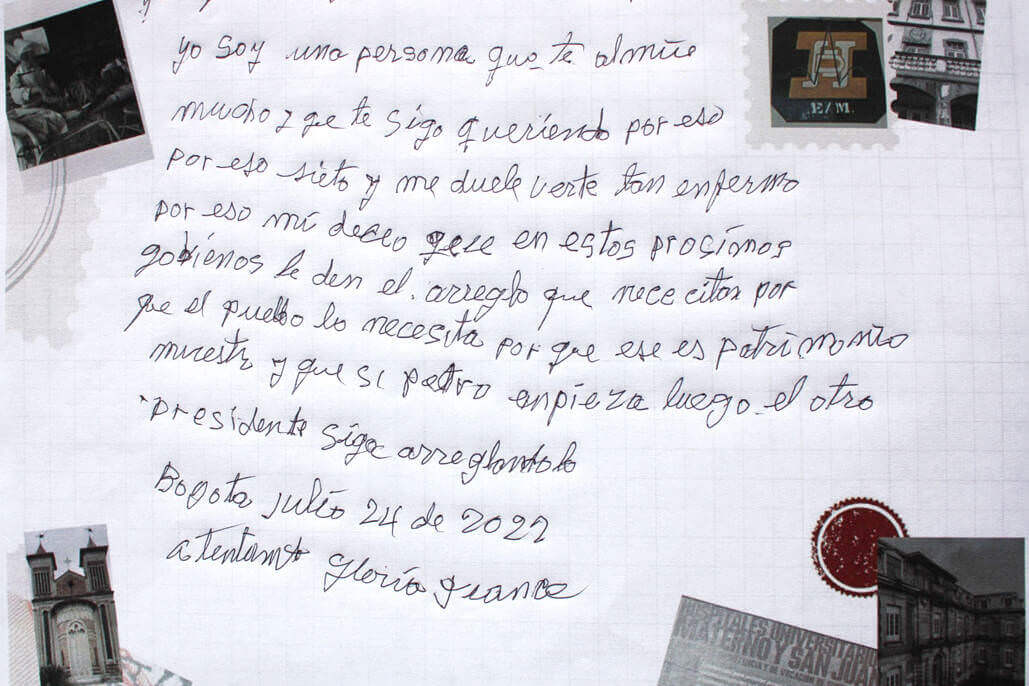 yo soy una persona que te almire
mucho y que te sigo queriendo por eso
por eso sieto y me duele verte tan enfermo
por eso mi deceo que en estos procimos
gobienos le den el. arreglo que nececitas por
que el pueblo lo necesita por que ese es patrimonio
nuestro y que si petro enpieza luego el otro
presidente siga arreglantolo
Bogota julio 24 de 2022
atentamente Gloria
E/M.
HOSPITALES UNIVERSITARIO
MATERNO Y SAN JUAN